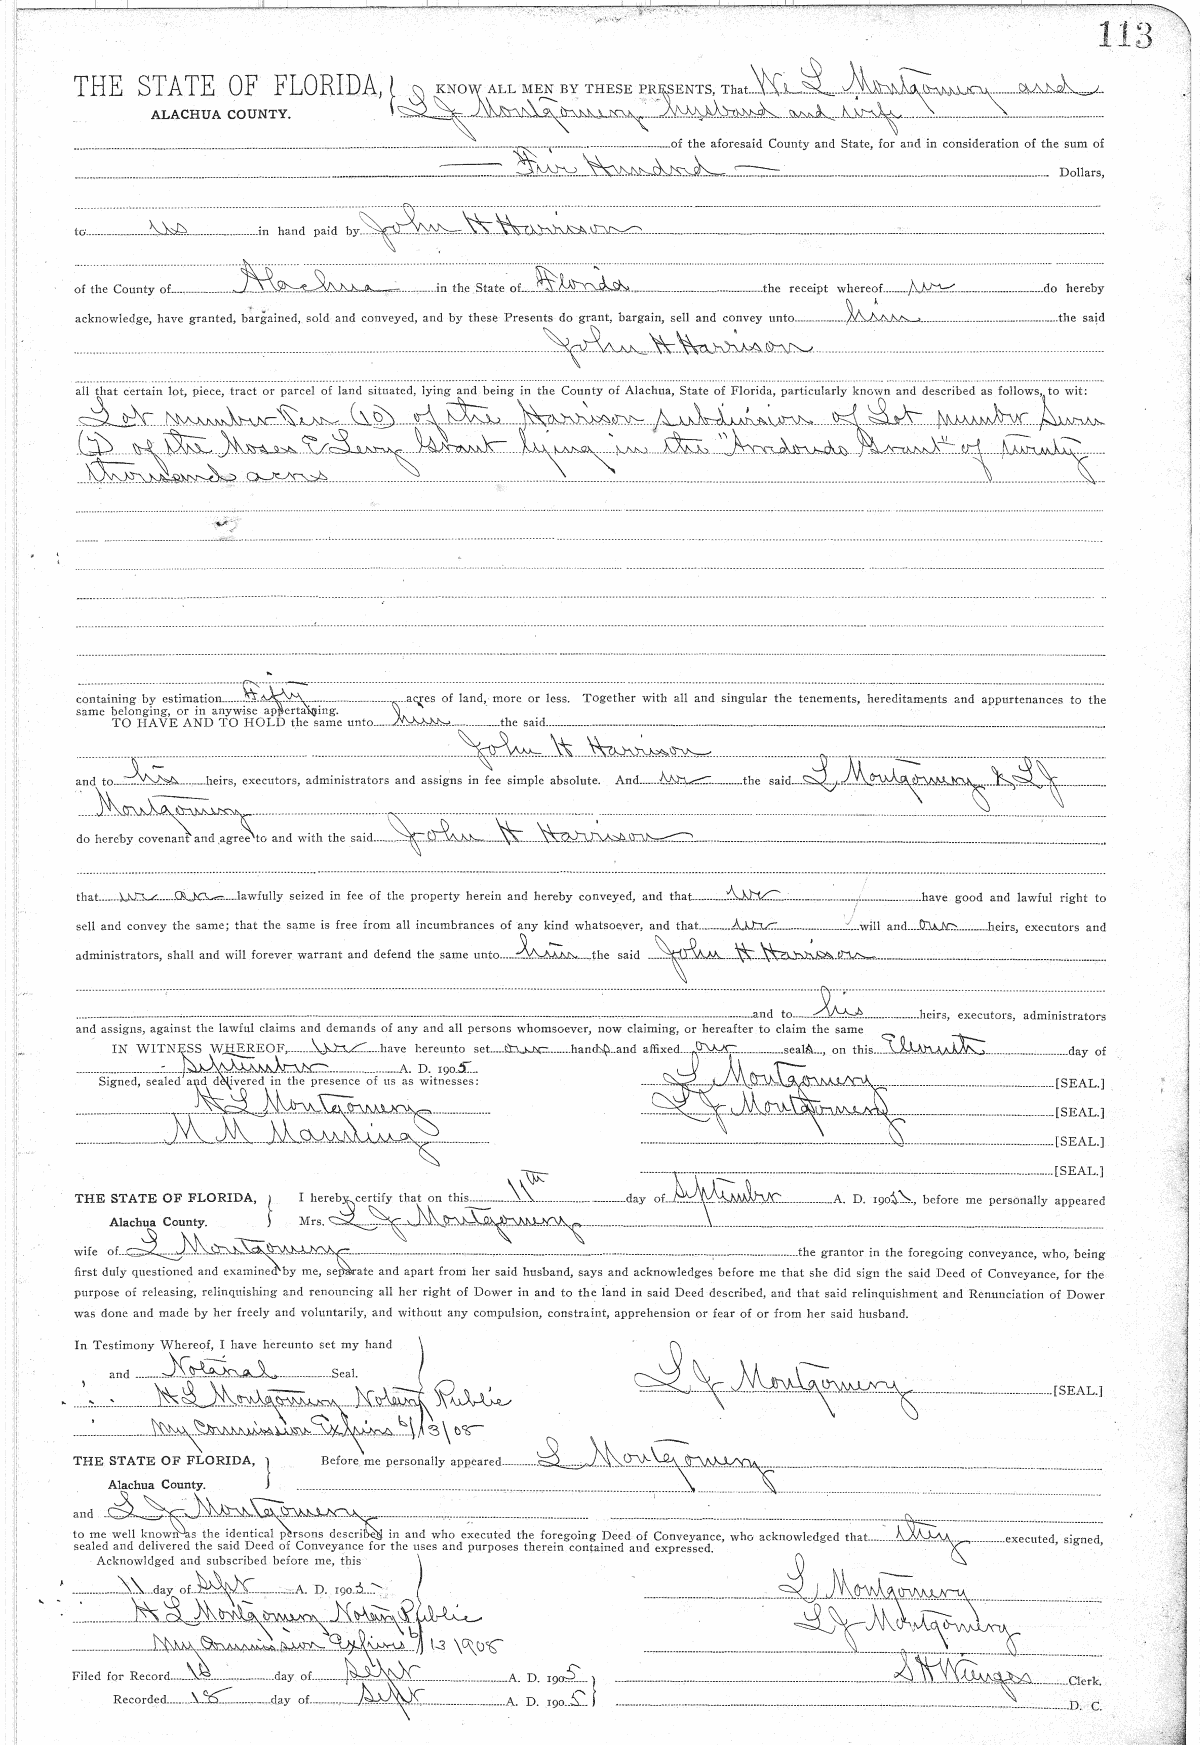 113
THE STATE OF FLORIDA, KNOW ALL MEN BY THESE PRESENTS, That We L Montgomery and
ALACHUA COUNTY. L J Montgomery husband and wife
of the aforesaid County and State, for and in consideration of the sum of
Five Hundred Dollars,
to us in hand paid by John H Harrison
of the County of Alachua in the State of Florida the receipt whereof we do hereby
acknowledge, have granted, bargained, sold and conveyed, and by these Presents do grant, bargain, sell and convey unto him the said
John H Harrison
all that certain lot, piece, tract or parcel of land situated, lying and being in the County of Alachua, State of Florida, particularly known and described as follows, to wit:
Lot number Ten (10) of the Harrison subdivision of Lot number Seven
(7) of the Moses E Levy Grant lying in the "Arredondo Grant" of twenty
thousand acres
containing by estimation Fifty acres of land, more or less. Together with all and singular the tenements, hereditaments and appurtenances to the
same belonging, or in anywise appertaining.
TO HAVE AND TO HOLD the same unto him the said
John H Harrison
and to his heirs, executors, administrators and assigns in fee simple absolute. And we the said L Montgomery & L J
Montgomery
do hereby covenant and agree to and with the said John H Harrison
that we are lawfully seized in fee of the property herein and hereby conveyed, and that we have good and lawful right to
sell and convey the same; that the same is free from all incumbrances of any kind whatsoever, and that we will and our heirs, executors and
administrators, shall and will forever warrant and defend the same unto him the said John H Harrison
and to his heirs, executors, administrators
and assigns, against the lawful claims and demands of any and all persons whomsoever, now claiming, or hereafter to claim the same
IN WITNESS WHEREOF, We have hereunto set our hands and affixed our seals, on this Eleventh day of
September A. D. 1905
Signed, sealed and delivered in the presence of us as witnesses: L Montgomery [SEAL.]
H L Montgomery L J Montgomery [SEAL.]
M M Manning [SEAL.]
[SEAL.]
THE STATE OF FLORIDA, I hereby certify that on this 11th day of September A. D. 1905, before me personally appeared
Alachua County. Mrs. L J Montgomery
wife of L Montgomery the grantor in the foregoing conveyance, who, being
first duly questioned and examined by me, separate and apart from her said husband, says and acknowledges before me that she did sign the said Deed of Conveyance, for the
purpose of releasing, relinquishing and renouncing all her right of Dower in and to the land in said Deed described, and that said relinquishment and Renunciation of Dower
was done and made by her freely and voluntarily, and without any compulsion, constraint, apprehension or fear of or from her said husband.
In Testimony Whereof, I have hereunto set my hand
and Notarial Seal. L J Montgomery [SEAL.]
H L Montgomery Notary Public
My Commission Expires 6/13/08
THE STATE OF FLORIDA, Before me personally appeared L Montgomery
Alachua County.
and L J Montgomery
to me well known as the identical persons described in and who executed the foregoing Deed of Conveyance, who acknowledged that they executed, signed,
sealed and delivered the said Deed of Conveyance for the uses and purposes therein contained and expressed.
Acknowldged and subscribed before me, this
11 day of Sept A. D. 1905 L Montgomery
H L Montgomery Notary Public L J Montgomery
My Commission Expires 6/13 1908
Filed for Record 18 day of Sept A. D. 1905 S H Wienges Clerk.
Recorded 18 day of Sept A. D. 1905 D. C.